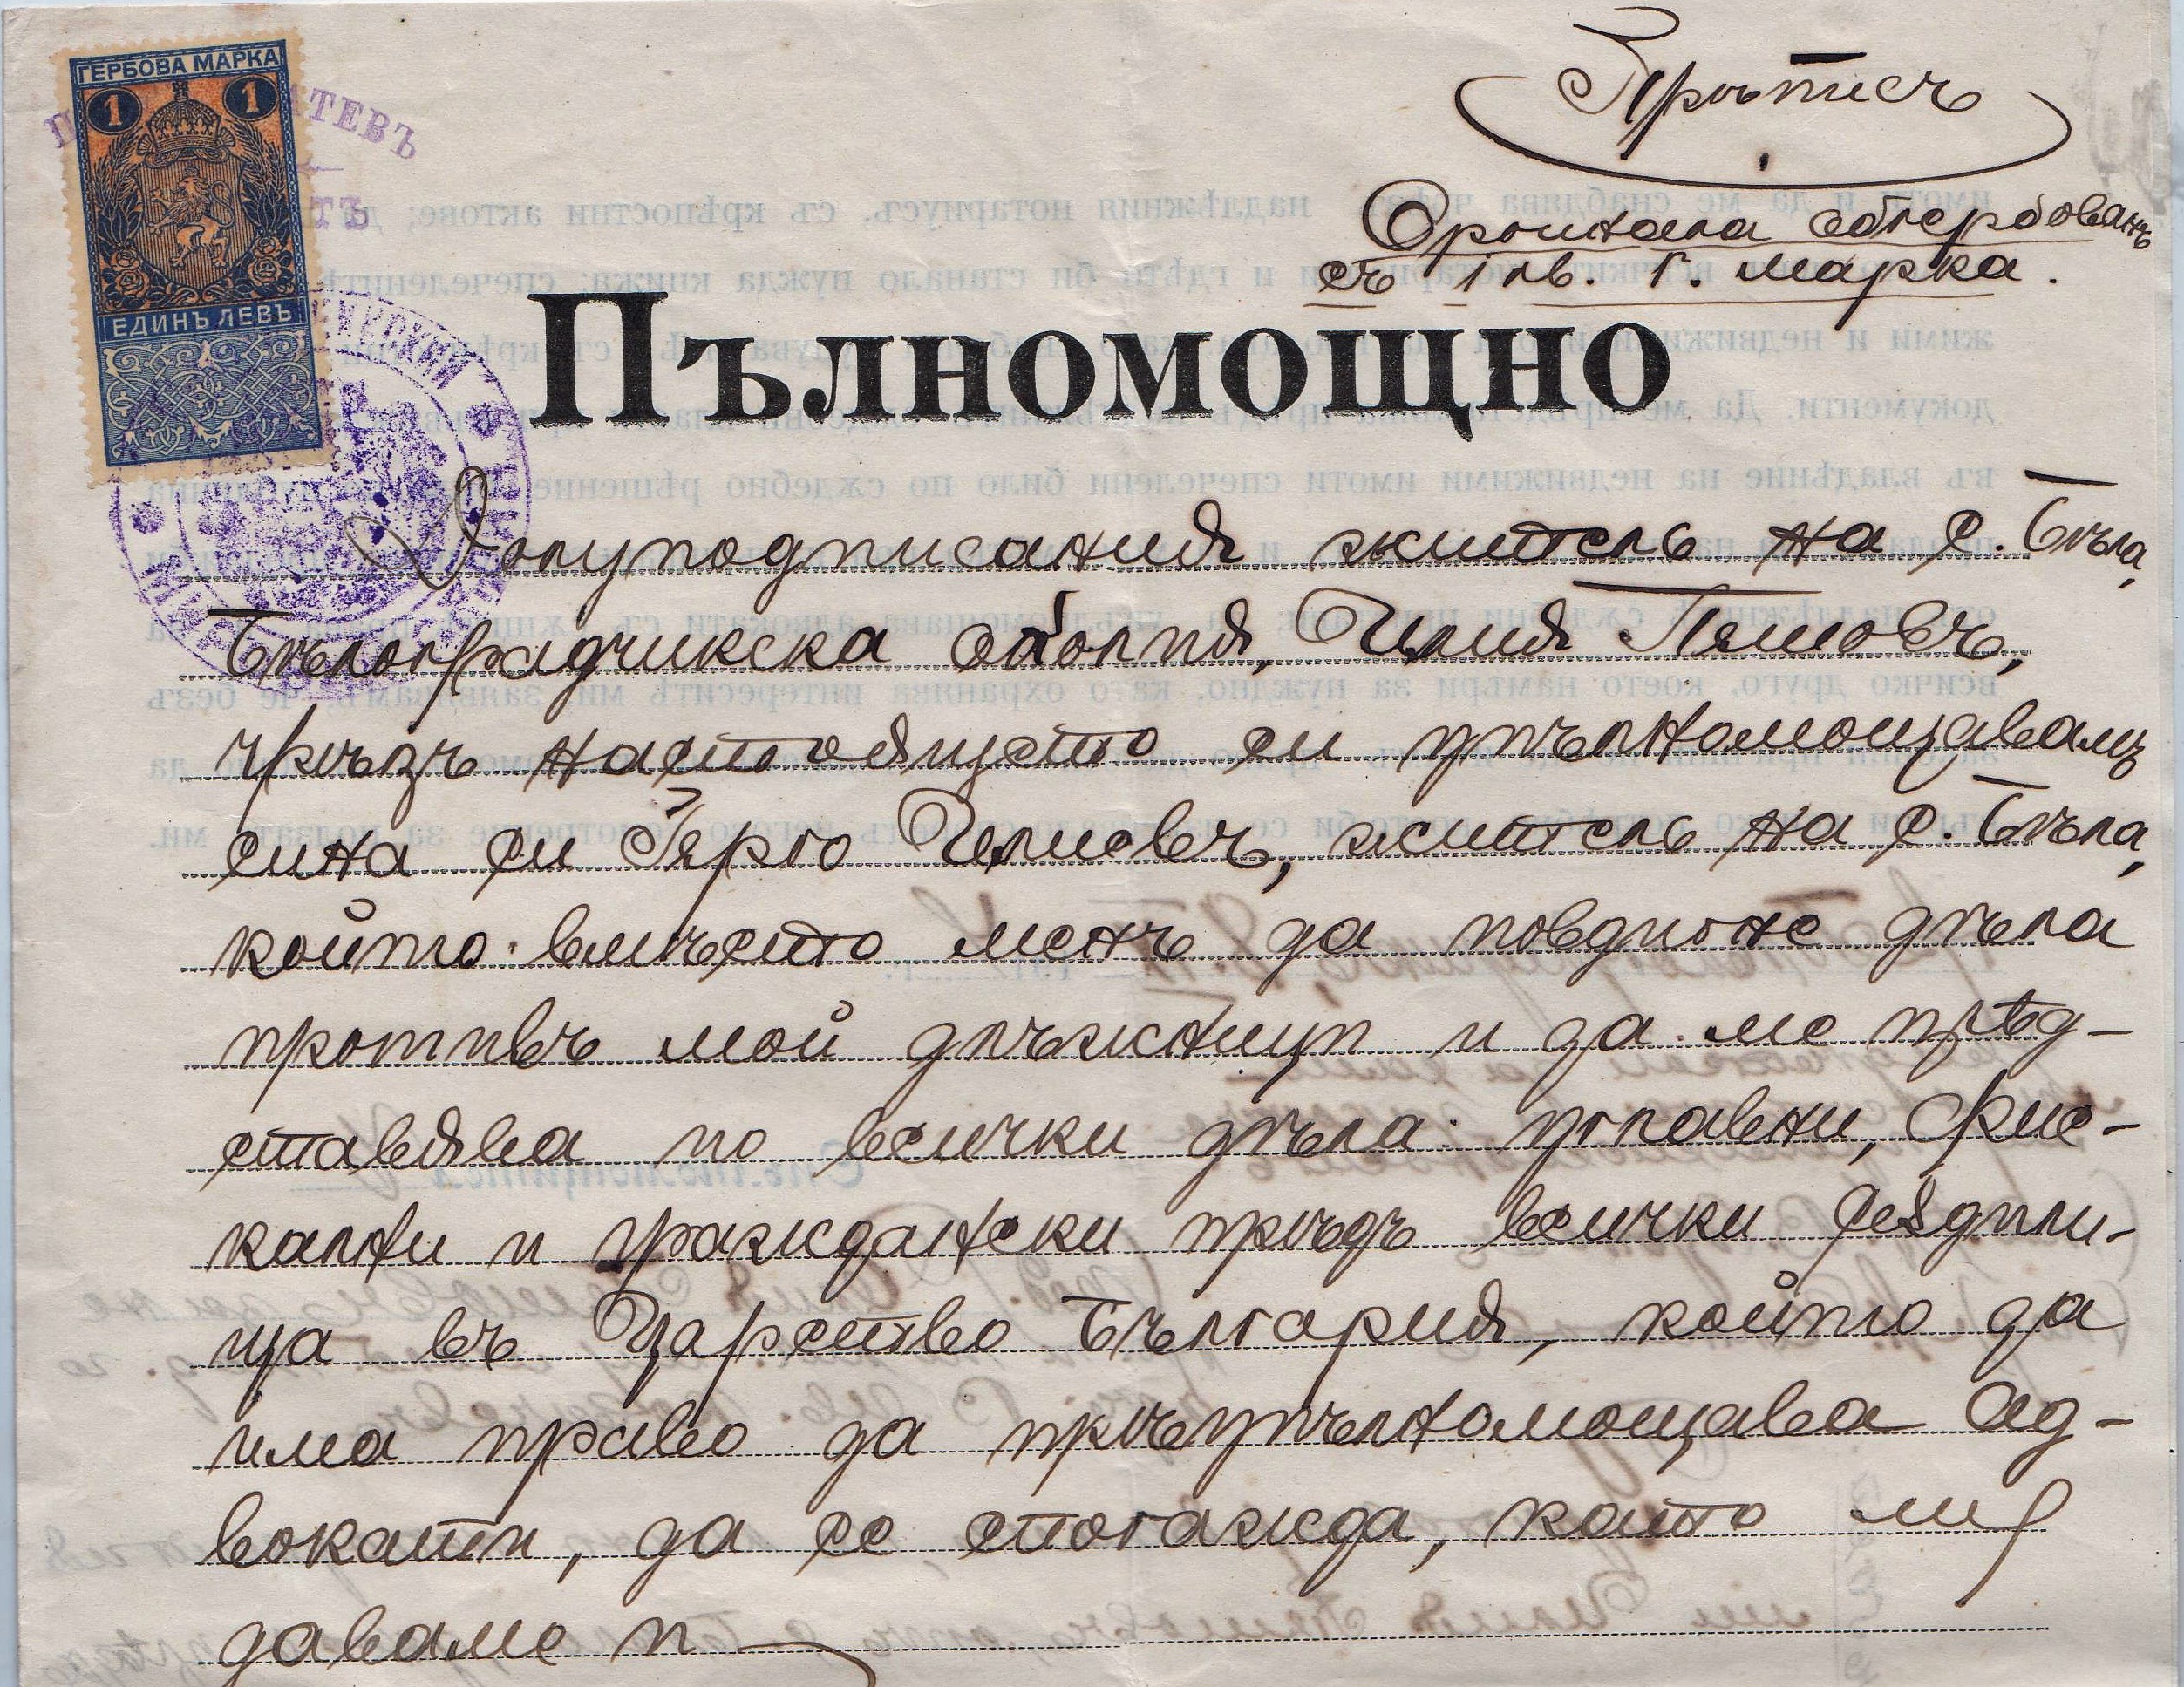 ГЕРБОВА МАРКА
1 1
ЕДИНЪ ЛЕВЪ
Прѣписъ
Оригинала обгербованъ
съ 1 лв. г. марка.
Пълномощно
Долуподписания жителъ на с. Бѣла,
Бѣлоградчикска околия, Илия Пешовъ,
чрѣзъ настоящето си упълномощавамъ
сина си Герго Илиевъ, жителъ на с. Бѣла,
който вмѣсто менъ да повдигне дѣла
противъ мой длъжници и да ме прѣд-
ставлява по всички дѣла: углавни, фис-
кални и граждански прѣдъ всички сѫдили-
ща въ Царство България, който да
има право да прѣупълномощава ад-
вокати, да се спогажда, като му
даваме и